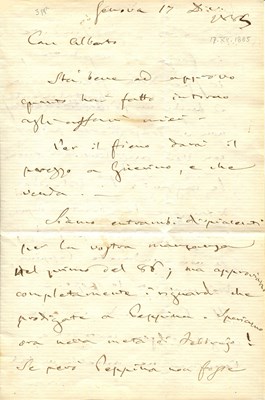 Genova 17
17.XII.1885
Caro Alberto
Sta bene ed approvo
quanto hai fatto intorno
agli affari miei -
Per il fieno darai il
prezzo a Guerino, e che
venda -
Siamo entrambi dispiacenti
per la vostra mancanza
nel primo dell' 86; ma approviamo
completamente i riguardi che
prodigate a Peppina. Speriamo
ora nella metà di Febbrajo!
Se però Peppina non fosse